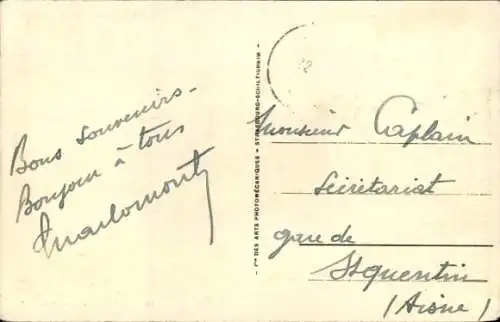 Bons souvenirs -
Bonjour à tous
Cie DES ARTS PHOTOMÉCANIQUES - STRASBOURG-SCHILTIGHEIM -
Monsieur Caplain
Secrétariat
gare de
St quentin
(Aisne)